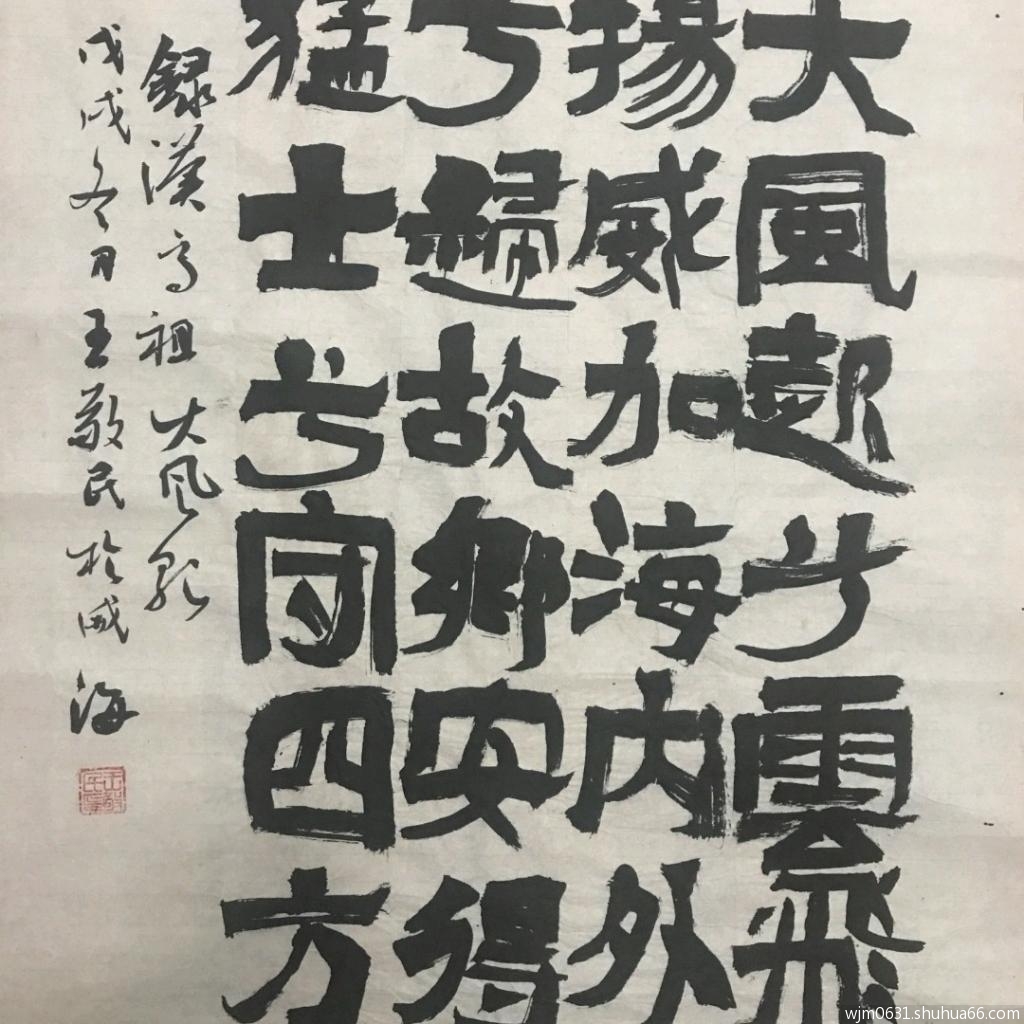 大風起兮雲飛
揚威加海内外
兮歸故鄉安得
猛士兮守四方
錄漢高祖大风歌
戊戌冬月王敬民於威海
wjm0631.shuhua66.com